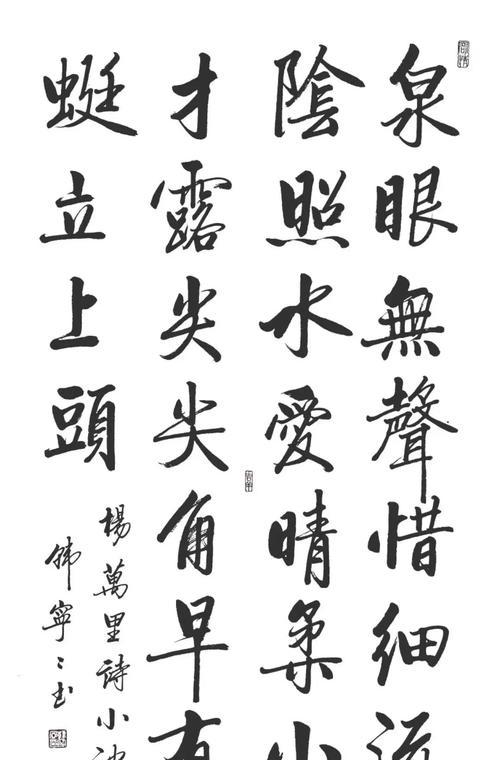 泉眼無聲惜細流
陰照水愛晴柔小
才露尖尖角早有
蜓立上頭
楊萬里詩小池
韩寧〻书